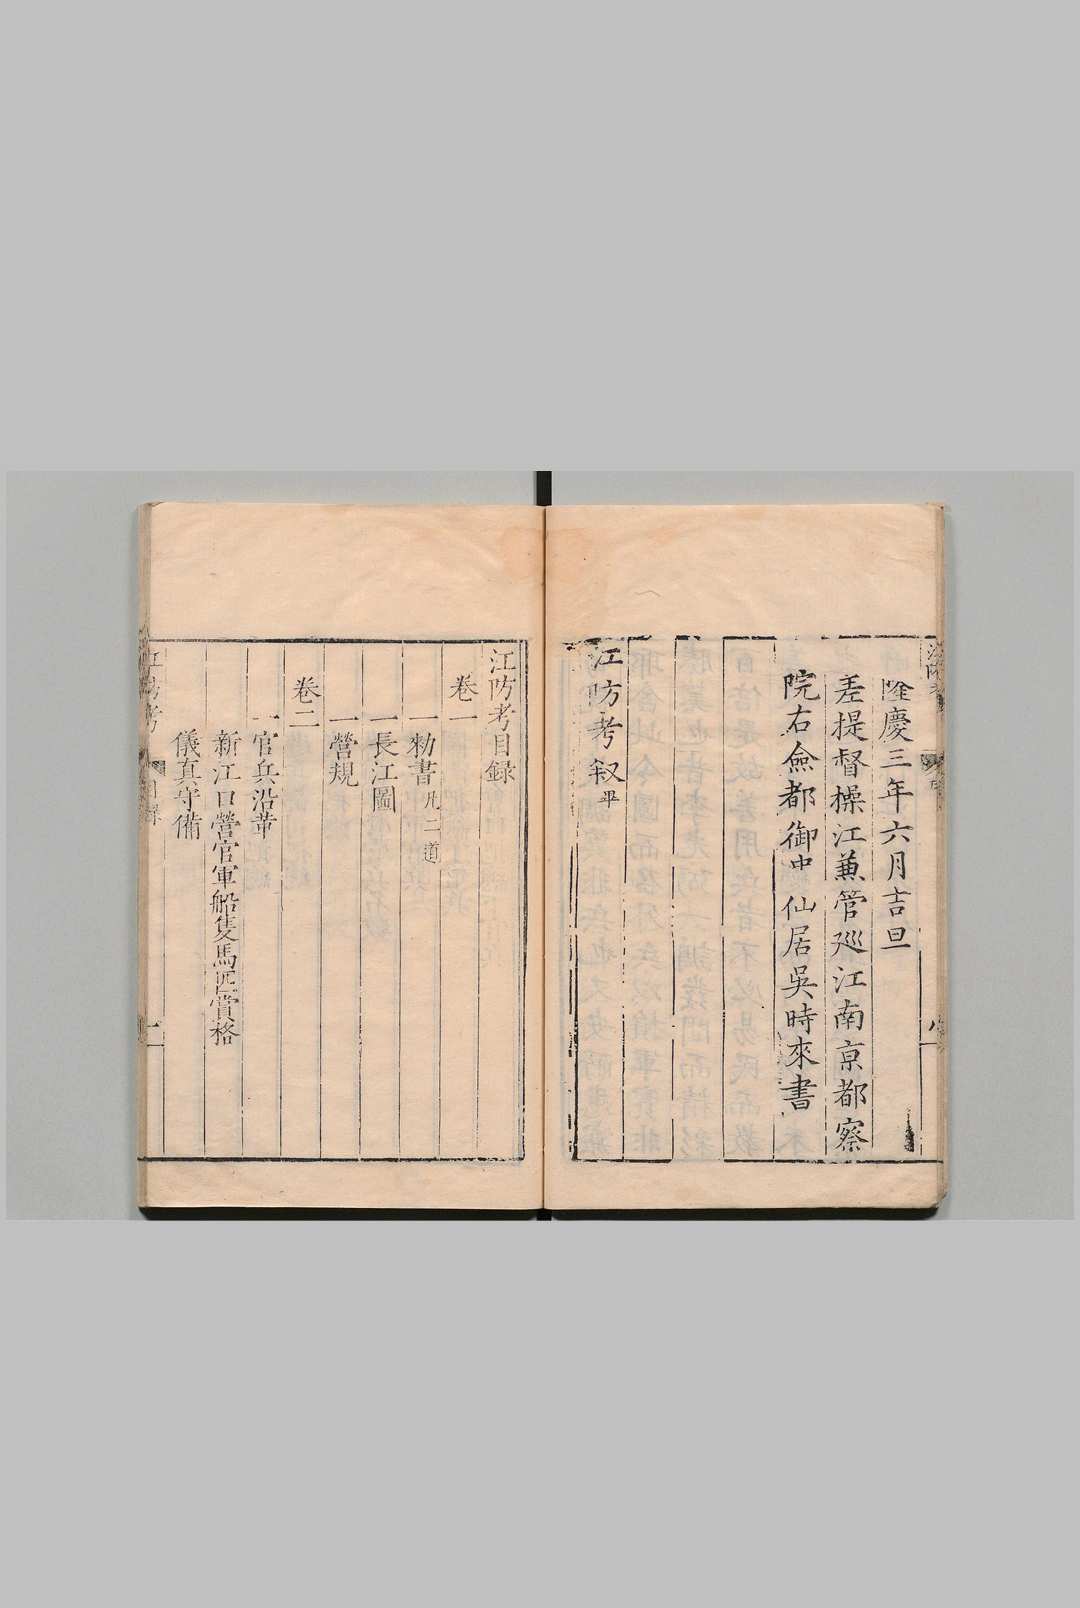 隆慶三年六月吉旦
差提督操江兼管廵江南京都察
院右僉都御史仙居吳時來書
江防考叙畢
江防考目録
卷一
一勑書凡二道
一長江圖
一營規
卷二
一官兵沿革
新江口營官軍船隻馬匹賞格
儀真守備
江防考
目録
一